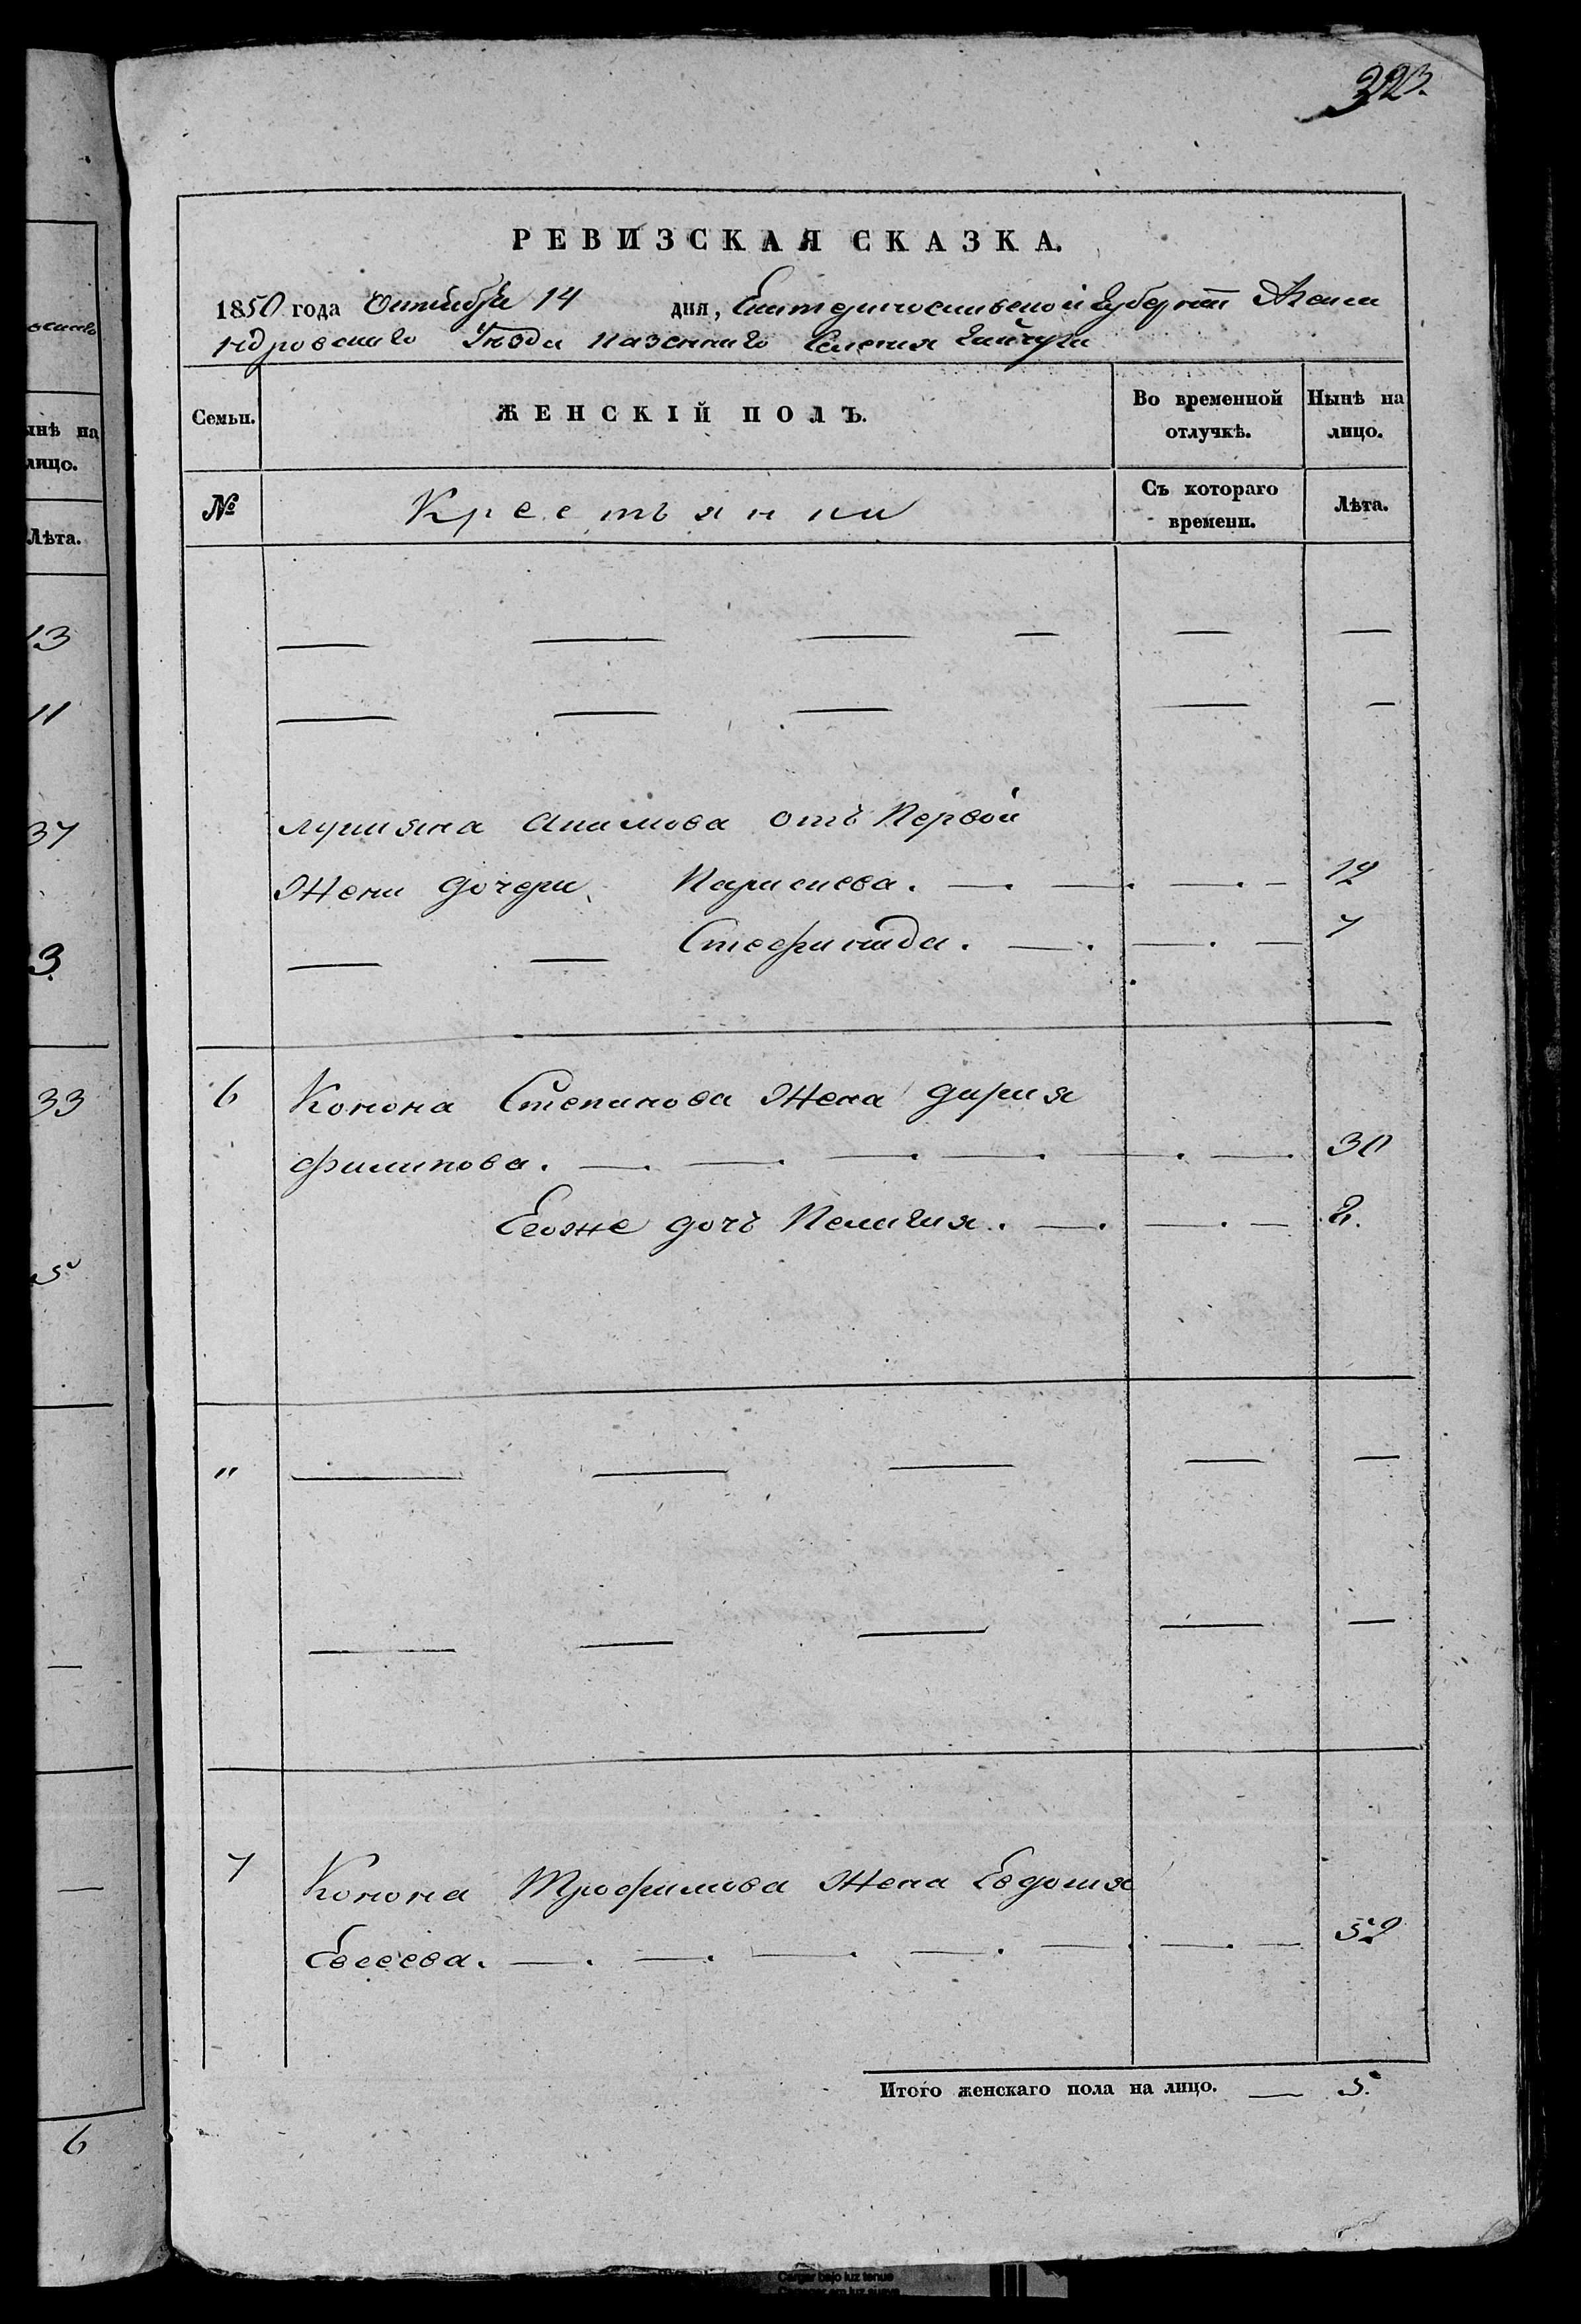 323.
РЕВИЗСКАЯ СКАЗКА.
1850 года Октября 14 дня, Екатеринославской Губернии Алекса
ндровскаго Уѣзда Казеннаго Селения Гайчура
Семьи.
ЖЕНСКІЙ ПОЛЪ.
Во временной
отлучкѣ.
Нынѣ на
лицо.
№
Крестьянки
Съ котораго
времени.
Лѣта.
лукияна Акимова отъ Первой
Жени дочери Параскева. 12
Стефанида. 7
6 Конона Степанова Жена дария
филипова. 30
Егоже дочъ Пелагия. 2.
"
7 Конона Трофимова Жена Евдокия
Евсеева. 52
Итого женскаго пола на лицо. 5.
ынѣ на
лицо.
Лѣта.
13
11
37
3.
33
5
6
Cargar bajo luz tenue